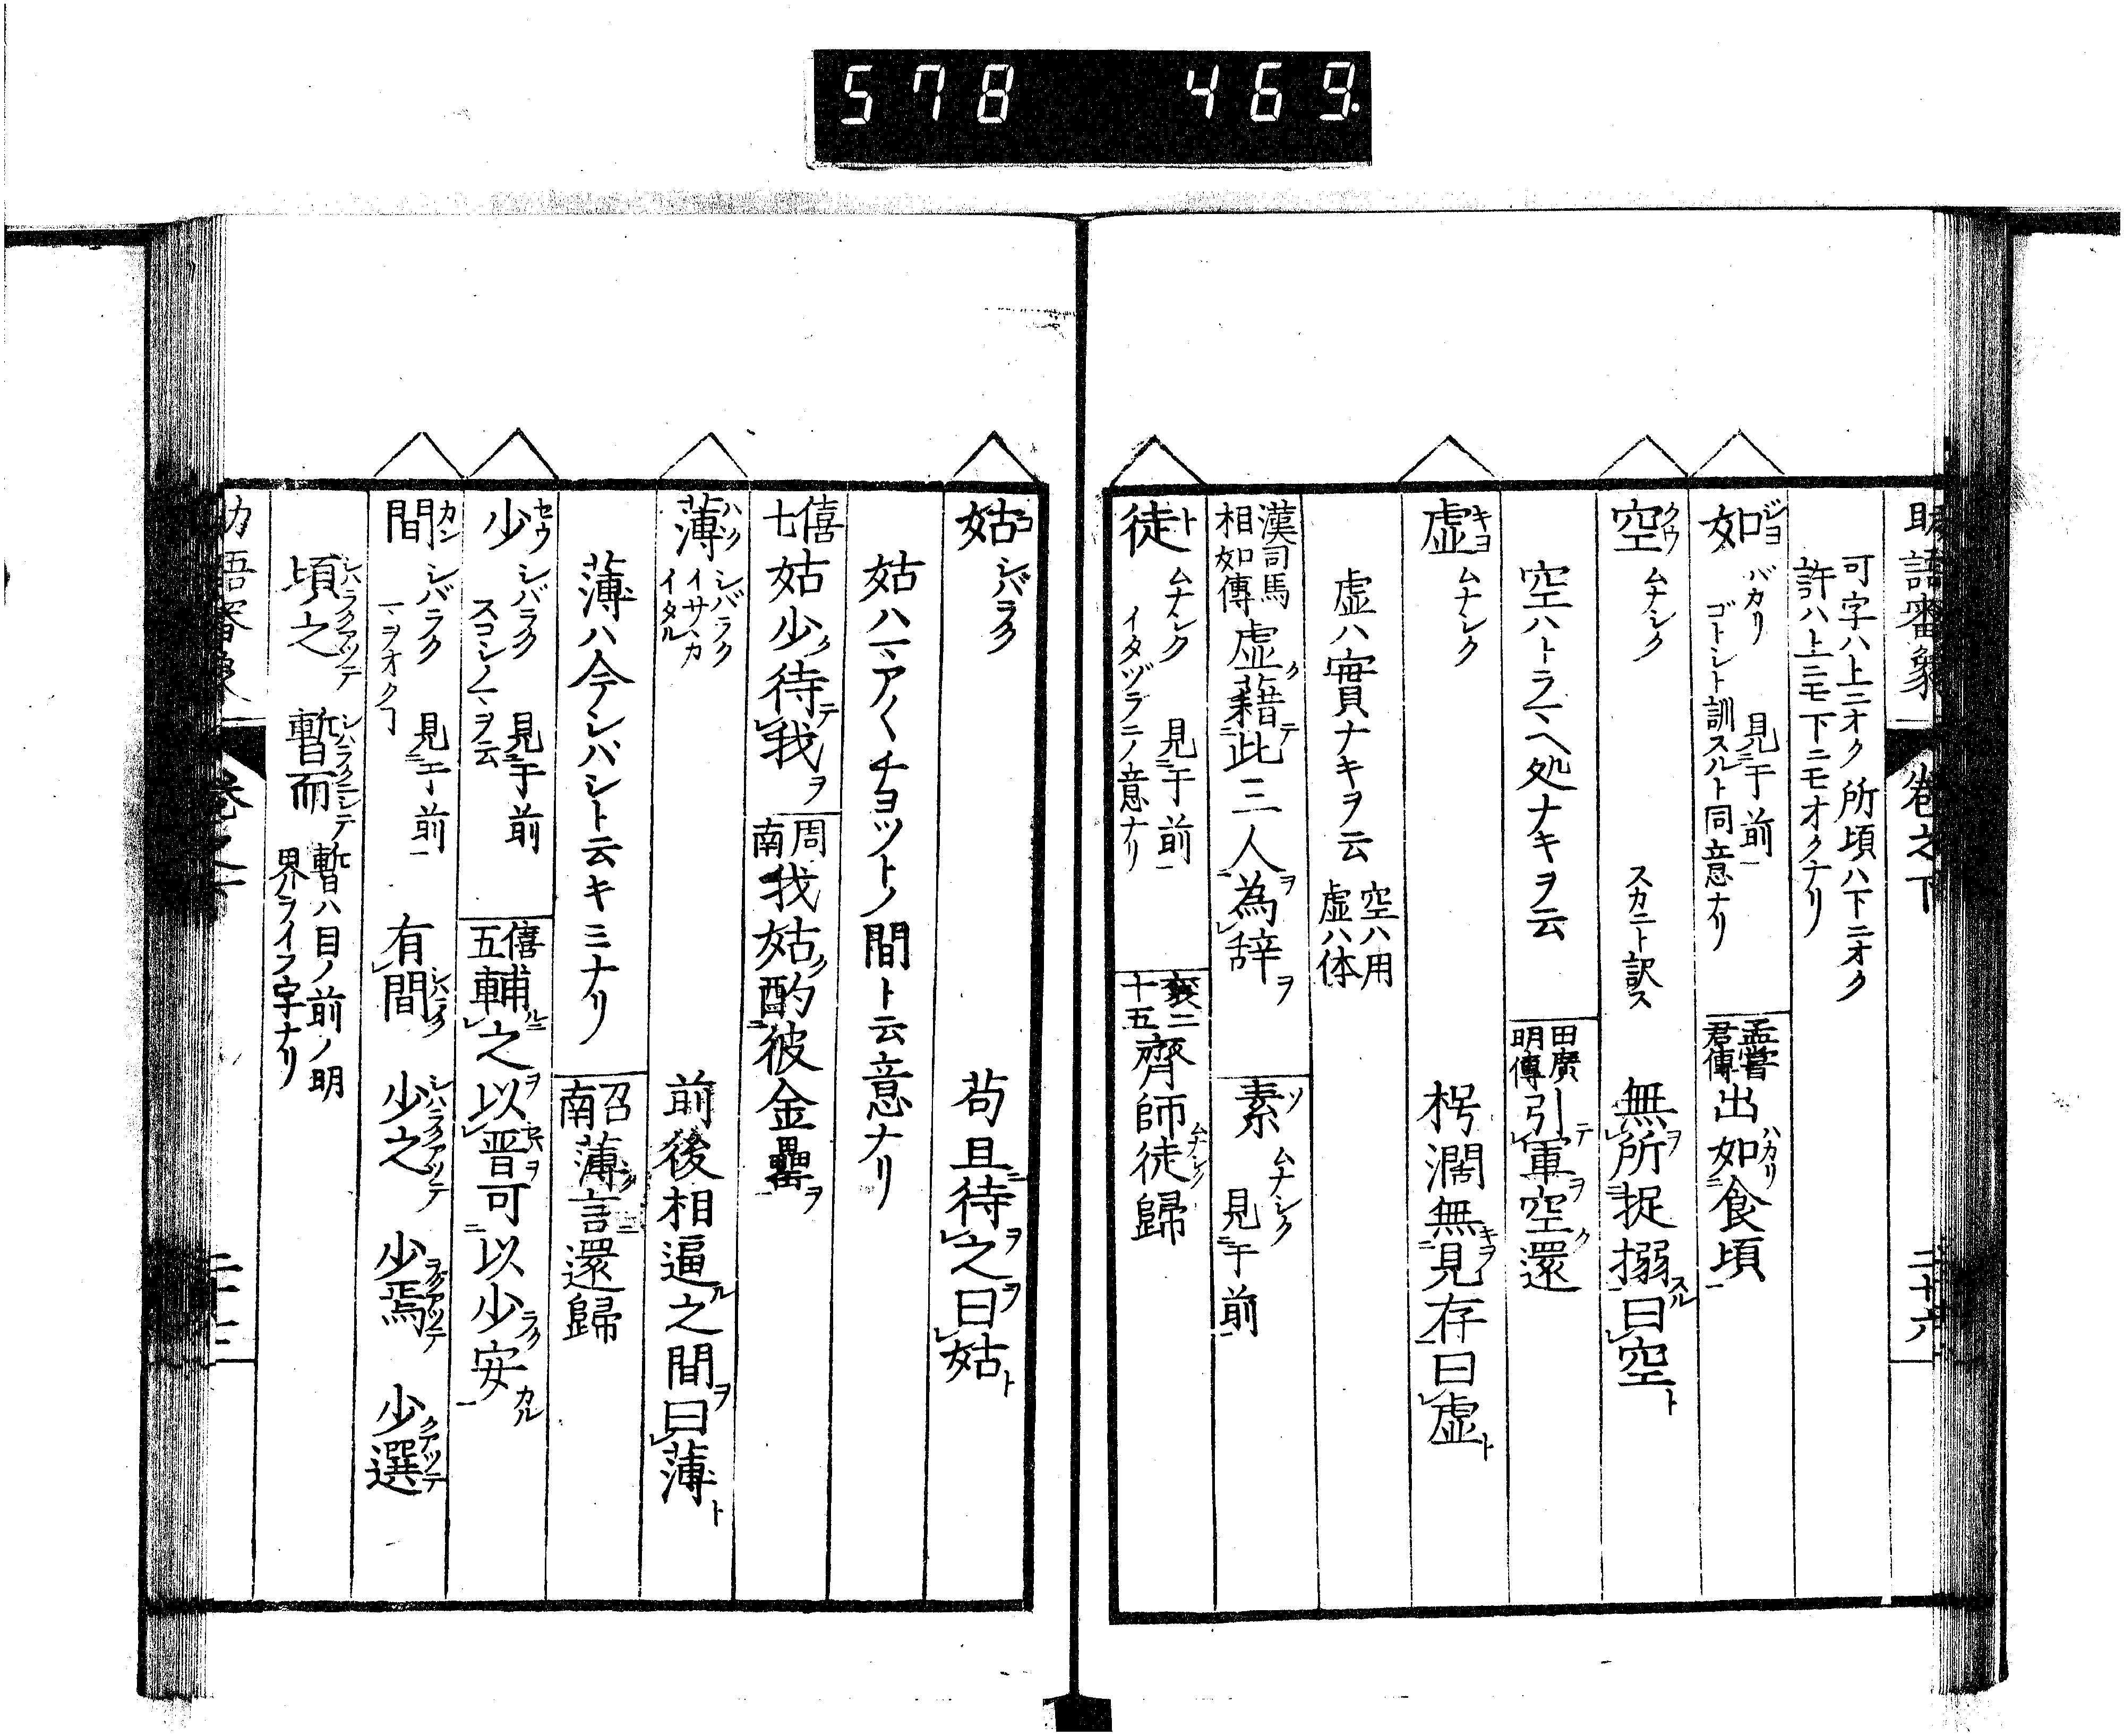 578 469
助語審象 巻之下 二十六
可字ハ上ニオク所頃ハ下ニオク
許ハ上ニモ下ニモオクナリ
如 ジヨ バカリ 見于前 ゴトシト訓スルト同意ナリ 孟嘗君傳 出如食頃
空 クウ ムナシク スカニト訳ス 無所捉搦曰空
空ハトラヘ処ナキヲ云 田廣明傳 引軍空還
虚 キヨ ムナシク 枵濶無見存曰虚
虚ハ實ナキヲ云 空ハ用 虚ハ体
漢司馬相如傳 虚藉此三人為辞 素 ソ ムナシク 見于前
徒 ト ムナシク 見于前 イタヅラニノ意ナリ 襄二十五 齊師徒歸
姑 コ シバラク 苟且待之曰姑
姑ハマア〱チヨツトノ間ト云意ナリ
僖七 姑少待我 周南 我姑酌彼金罍
薄 ハク シバラク イサヽカ イタル 前後相逼之間曰薄
薄ハ今シバシト云キミナリ 召南 薄言還歸
少 セウ シバラク 見于前 スコシノマヲ云 僖五 輔之以晋可以少安
間 カン シバラク 見于前 マヲオクヿ 有間 少之 少焉 少選
頃之 シハラクアツテ 暫而 シハラクニシテ 暫ハ目ノ前ノ明界ライフ字ナリ
助語審象 巻之下